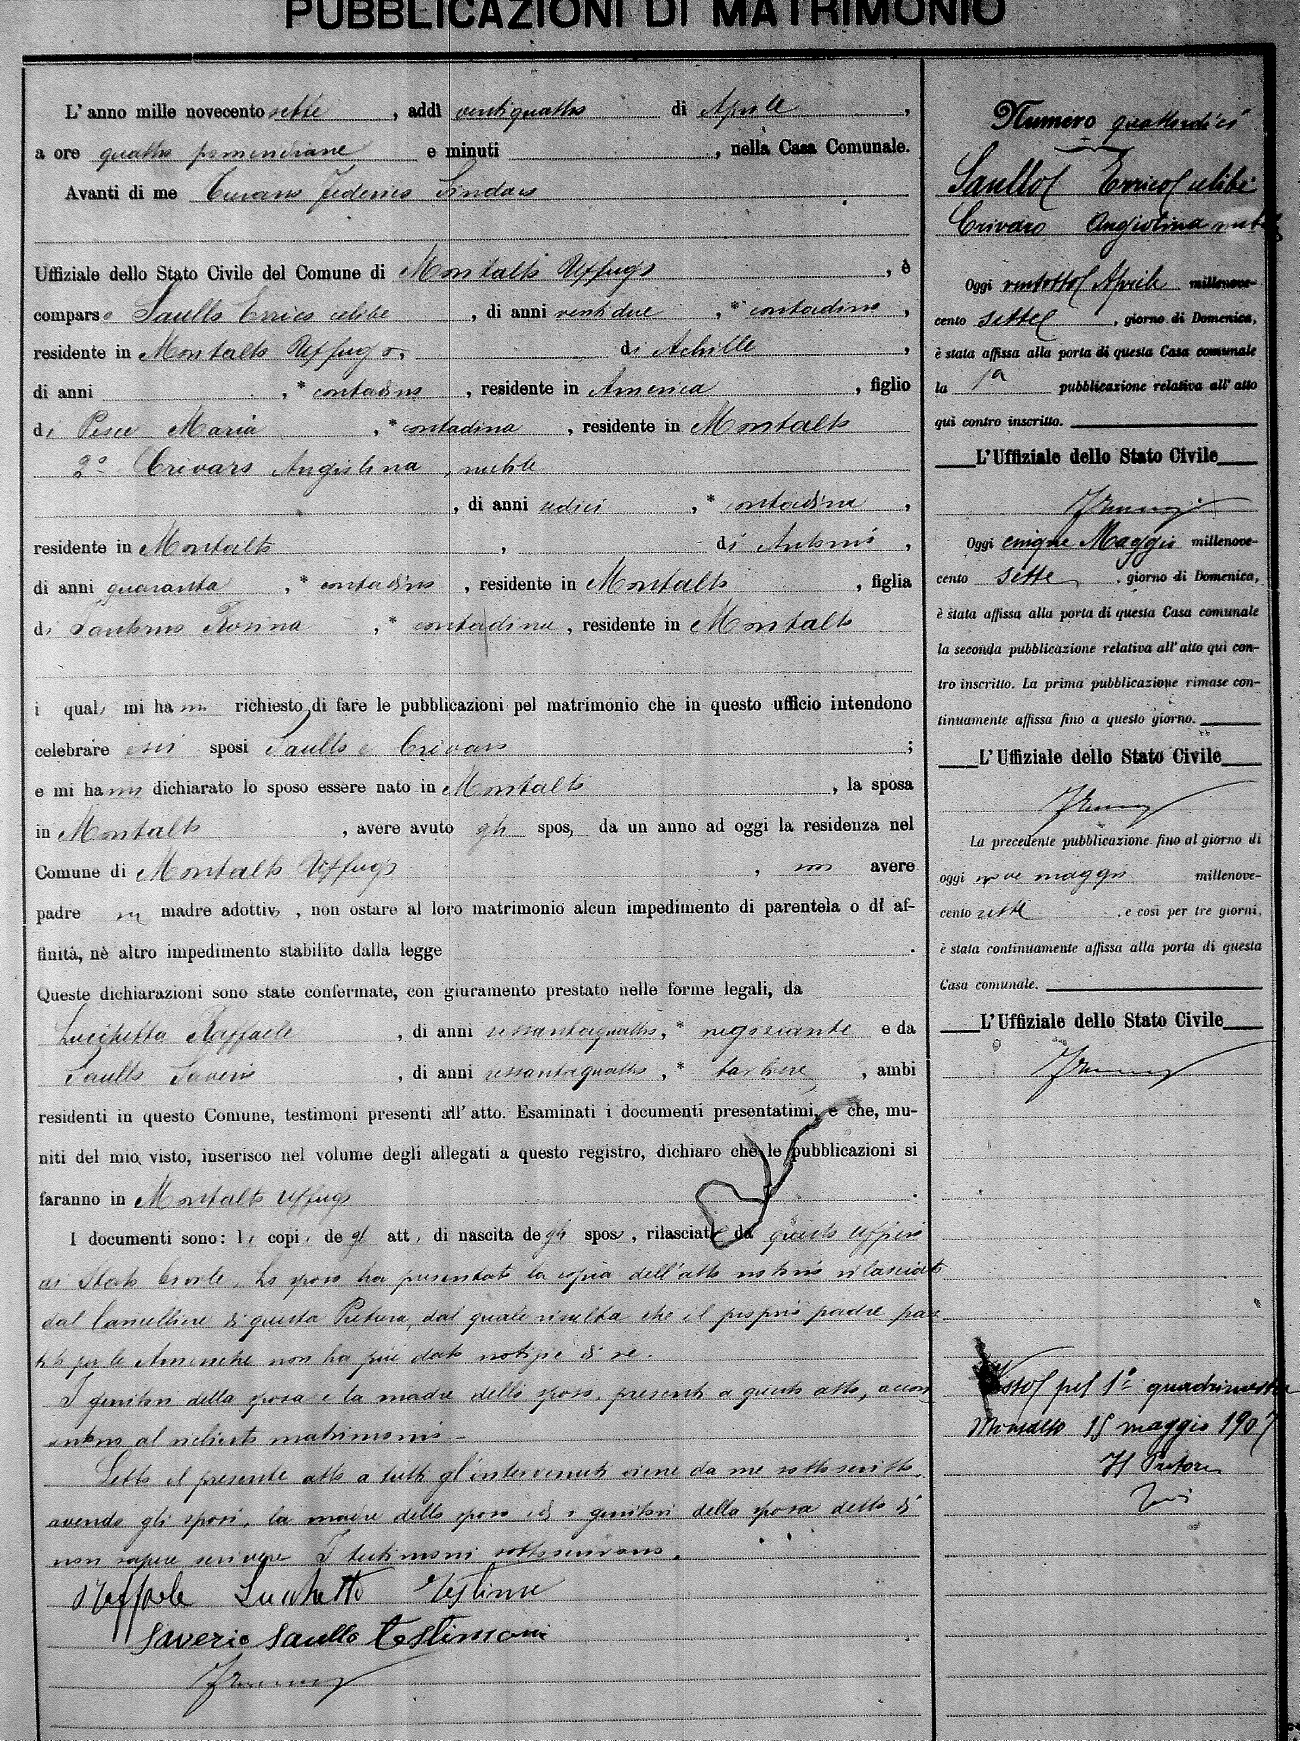 PUBBLICAZIONI DI MATRIMONIO
L'anno mille novecento sette, addì ventiquattro di Aprile,
a ore quattro pomeridiane e minuti , nella Casa Comunale.
Avanti di me Federico Sindaco
Uffiziale dello Stato Civile del Comune di Montalto Uffugo, è
comparso Saullo Errico celibe, di anni ventidue, * contadino,
residente in Montalto Uffugo, di Achille,
di anni , * contadino, residente in America, figlio
di Pesce Maria, * contadina, residente in Montalto
2° Crivaro Angiolina, nubile
, di anni sedici, * contadina,
residente in Montalto, di Antonio,
di anni quaranta, * contadino, residente in Montalto, figlia
di Rosina, * contadina, residente in Montalto
i quali mi hanno richiesto di fare le pubblicazioni pel matrimonio che in questo ufficio intendono
celebrare essi sposi Saullo e Crivaro;
e mi hanno dichiarato lo sposo essere nato in Montalto, la sposa
in Montalto, avere avuto gli sposi da un anno ad oggi la residenza nel
Comune di Montalto Uffugo, non avere
padre nè madre adottivi, non ostare al loro matrimonio alcun impedimento di parentela o di af-
finità, nè altro impedimento stabilito dalla legge .
Queste dichiarazioni sono state confermate, con giuramento prestato nelle forme legali, da
Lucchetta Raffaele, di anni sessantaquattro, * negoziante e da
Saullo Saverio, di anni sessantaquattro, * barbiere, ambi
residenti in questo Comune, testimoni presenti all'atto. Esaminati i documenti presentatimi, e che, mu-
niti del mio visto, inserisco nel volume degli allegati a questo registro, dichiaro che le pubblicazioni si
faranno in Montalto Uffugo.
I documenti sono: le copie degli atti di nascita degli sposi, rilasciate da questo Ufficio
di Stato Civile. Lo sposo ha presentato la copia dell'atto notorio rilasciato
dal Cancelliere di questa Pretura, dal quale risulta che il proprio padre par
tito per le Americhe non ha più dato notizie di se.
I genitori della sposa e la madre dello sposo, presenti a questo atto, accon
sentono al richiesto matrimonio.
Letto il presente atto a tutti gl'intervenuti viene da me sottoscritto,
avendo gli sposi, la madre dello sposo ed i genitori della sposa detto di
non sapere scrivere. I testimoni sottoscrivono.
Raffaele Lucchetta Testimone
Saverio Saullo testimoni
Numero quattordici
Saullo Errico celibe
Crivaro Angiolina nubile
Oggi ventotto Aprile millenove-
cento sette, giorno di Domenica,
è stata affissa alla porta di questa Casa comunale
la 1a pubblicazione relativa all'atto
qui contro inscritto.
L'Uffiziale dello Stato Civile
Oggi cinque Maggio millenove-
cento sette, giorno di Domenica,
è stata affissa alla porta di questa Casa comunale
la seconda pubblicazione relativa all'atto qui con-
tro inscritto. La prima pubblicazione rimase con-
tinuamente affissa fino a questo giorno.
L'Uffiziale dello Stato Civile
La precedente pubblicazione fino al giorno di
oggi nove maggio millenove-
cento sette, e così per tre giorni,
è stata continuamente affissa alla porta di questa
Casa comunale.
L'Uffiziale dello Stato Civile
Visto pel 1° quadrimestre
Montalto 15 maggio 1907
Il Pretore